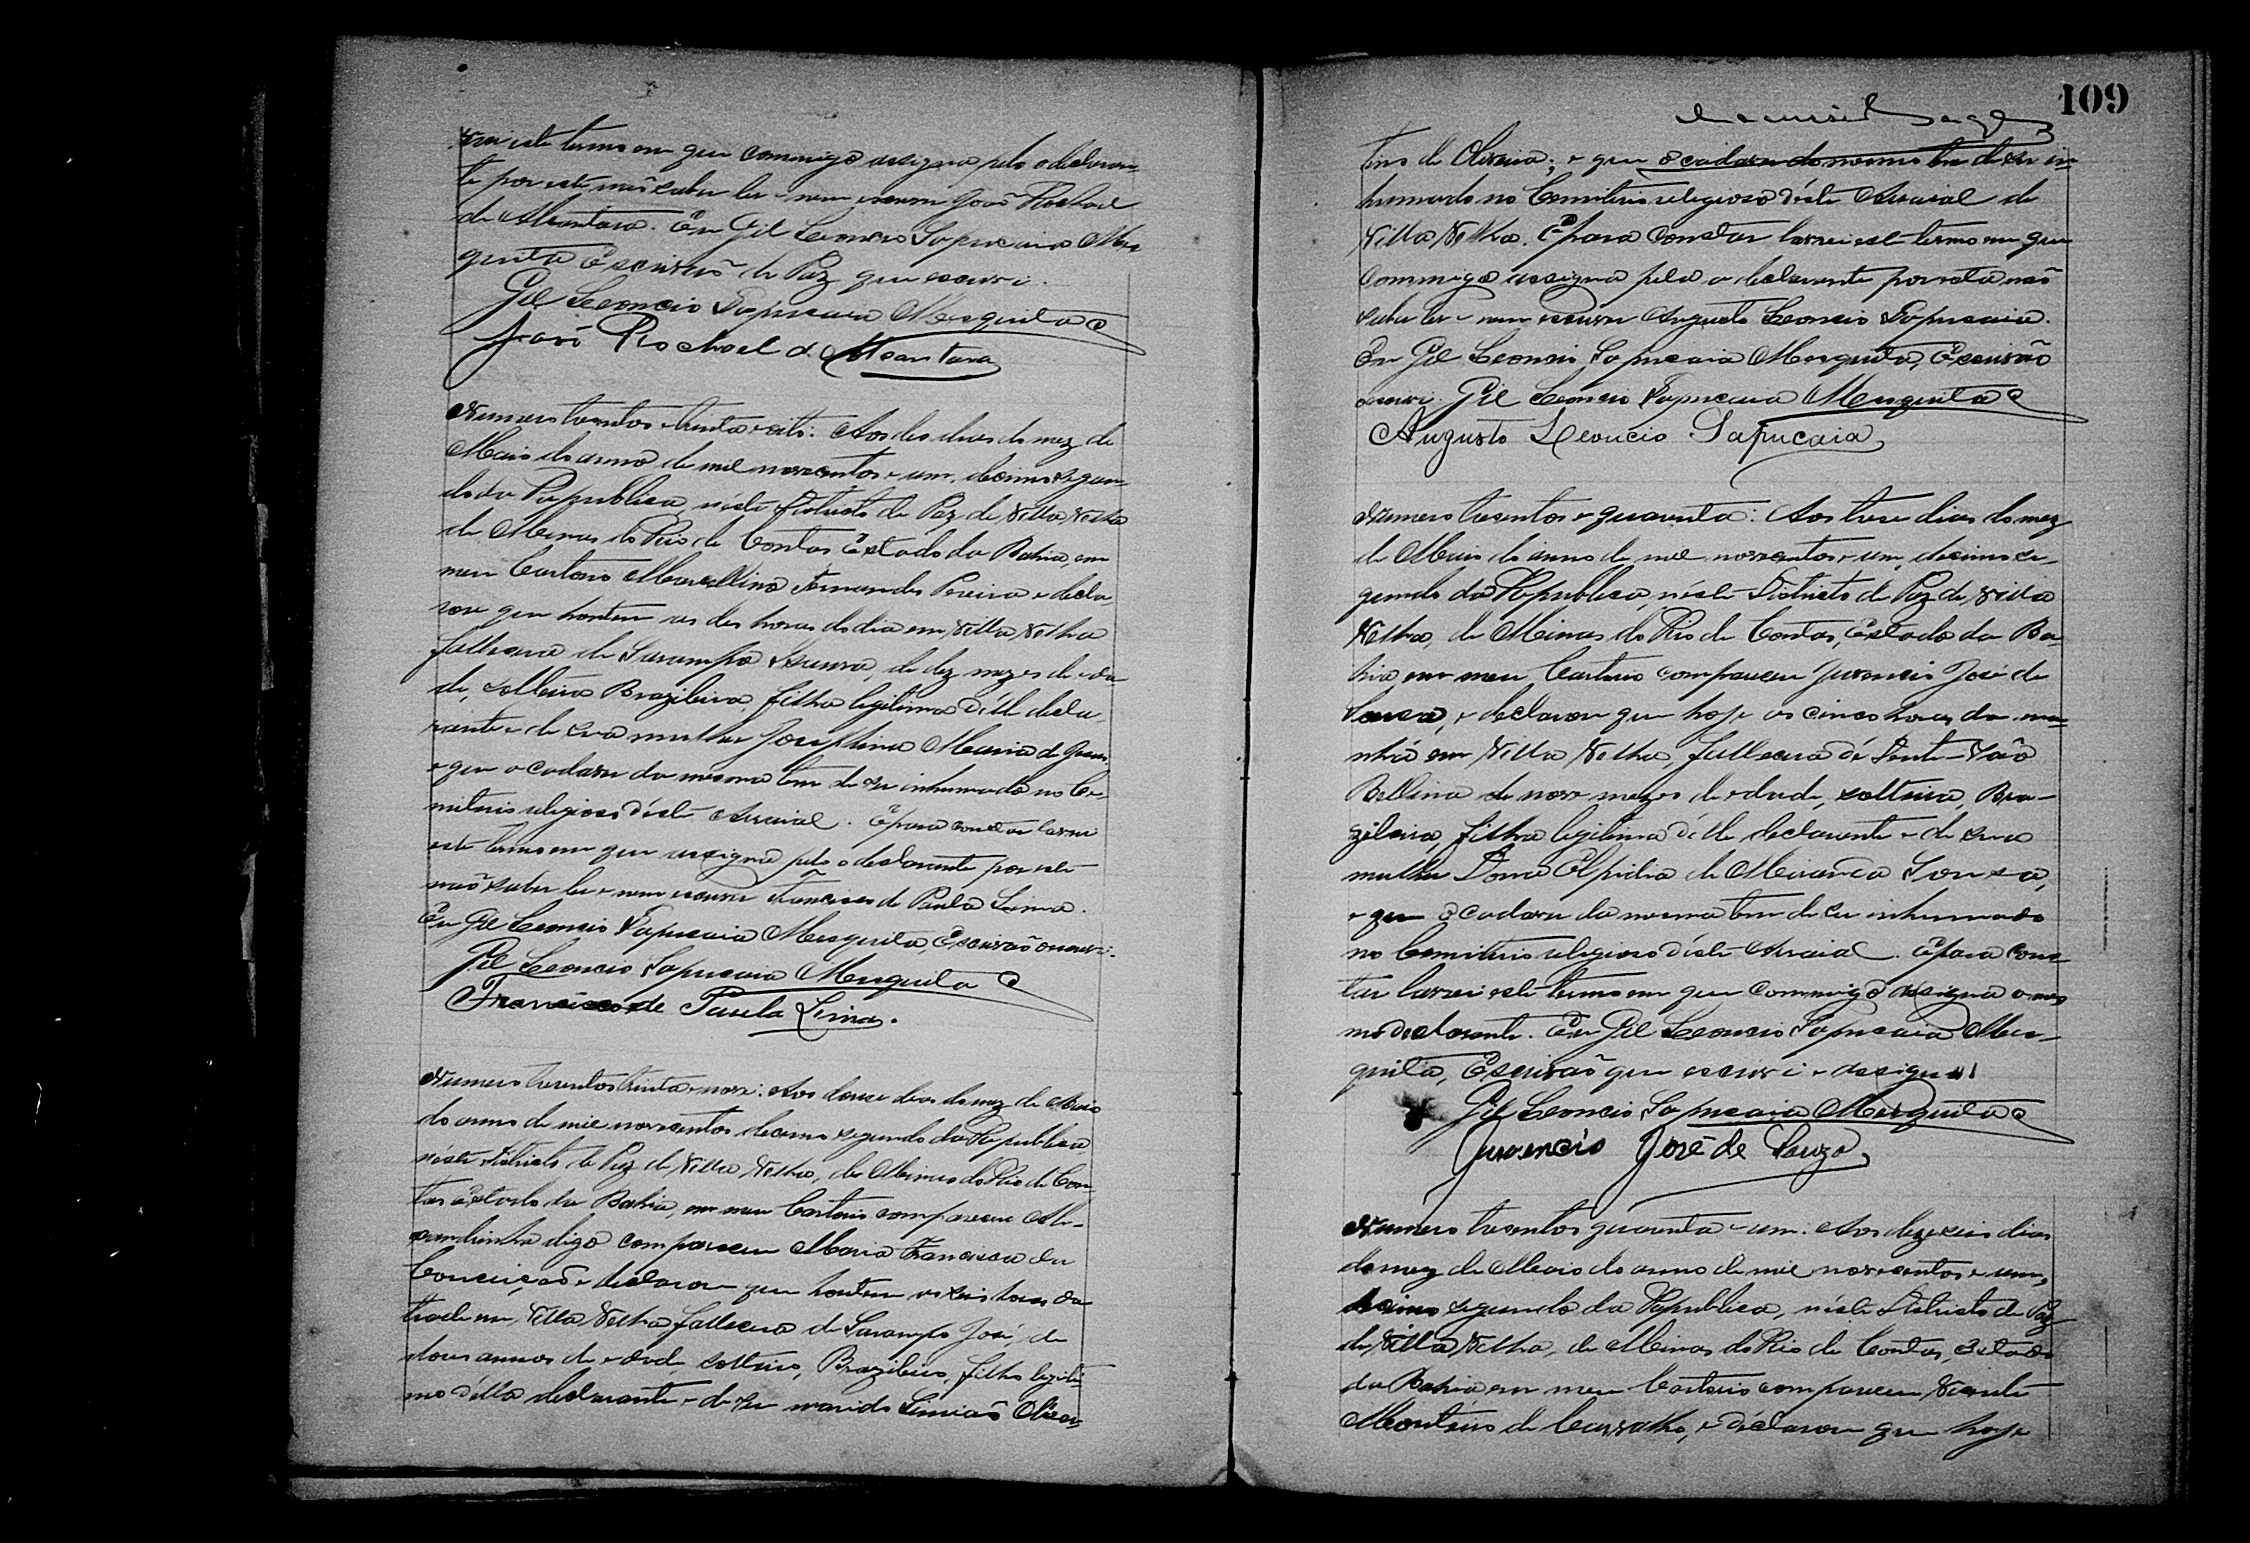 vrei este termo em que commigo assigna pelo o declaran-
te por este não saber ler e nem escrever João Rochael
de Alcantara. Eu Gil Leoncio Sapucaia Mes-
quita Escrivão de Paz que escrevi.
Gil Leoncio Sapucaia Mesquita
João Rochael de Alcantara
Numero tresentos e trinta e oito: Aos dês dias do mez de
Maio do anno de mil novecentos e um, decimo segun-
do da Republica, n'este Districto de Paz de Villa Velha
de Minas do Rio de Contas Estado da Bahia, em
meu Cartorio Marcellino Fernandes Pereira e decla-
rou que hontem as dês horas do dia em Villa Velha
fallecera de Sarampo Isaura, de dez mezes de ida-
de, solteira Brazileira, filha legitima d'elle decla-
rante e de sua mulher Josephina Maria de Jesus,
e que o cadaver da mesma tem de ser inhumado no Ce-
miterio religioso d'este Arraial. E para constar lavrei
este termo em que assigna pelo o declarante por este
não saber ler e nem escrever Francisco de Paula Lima.
Eu Gil Leoncio Sapucaia Mesquita, Escrivão escrevi.
Gil Leoncio Sapucaia Mesquita
Francisco de Paula Lima.
Numero tresentos trinta e nove: Aos douze dias do mez de Maio
do anno de mil novecentos decimo segundo da Republica
n'este Districto de Paz de Villa Velha, de Minas do Rio de Con-
tas Estado da Bahia, em meu Cartorio compareceu Ale-
xandrinha digo compareceu Maria Francisca da
Conceição e declarou que hontem as seis horas da
tarde em Villa Velha fallecera de Sarampo José, de
dous annos de idade solteiro, Brazileiro, filho legiti-
mo d'ella declarante e de seu marido Simião Olivei-
109
tos de Oliveira; e que o cadaver do mesmo tem de ser in-
humado no Cemiterio religioso d'este Arraial de
Villa Velha. E para constar lavrei este termo em que
commigo assigna pela a declarante por esta não
saber ler e nem escrever Augusto Leoncio Sapucaia.
Eu Gil Leoncio Sapucaia Mesquita, Escrivão
escrevi. Gil Leoncio Sapucaia Mesquita
Augusto Leoncio Sapucaia
Numero tresentos e quarenta: Aos trese dias do mez
de Maio do anno de mil novecentos e um, decimo se-
gundo da Republica, n'este Districto de Paz de Villa
Velha, de Minas do Rio de Contas, Estado da Ba-
hia em meu Cartorio compareceu Juvencio José de
Souza, e declarou que hoje as cinco horas da ma-
nhã em Villa Velha, fallecera de Dentição
Bellina de nove mezes de edade, solteira, Bra-
zileira, filha legitima d'elle declarante e de sua
mulher Dona Elpidia de Miranda Souza,
e que o cadaver da mesma tem de ser inhumado
no Cemiterio religioso d'este Arraial. E para cons-
tar lavrei este termo em que commigo assigna o mes-
mo declarante. Eu Gil Leoncio Sapucaia Mes-
quita, Escrivão que escrevi e assignei
Gil Leoncio Sapucaia Mesquita
Juvencio José de Souza
Numero tresentos quarenta e um: Aos dezeseis dias
do mez de Maio do anno de mil novecentos e um,
decimo segundo da Republica, n'este Districto de Paz
de Villa Velha, de Minas do Rio de Contas, Estado
da Bahia em meu Cartorio compareceu Vicente
Monteiro de Carvalho, e declarou que hoje